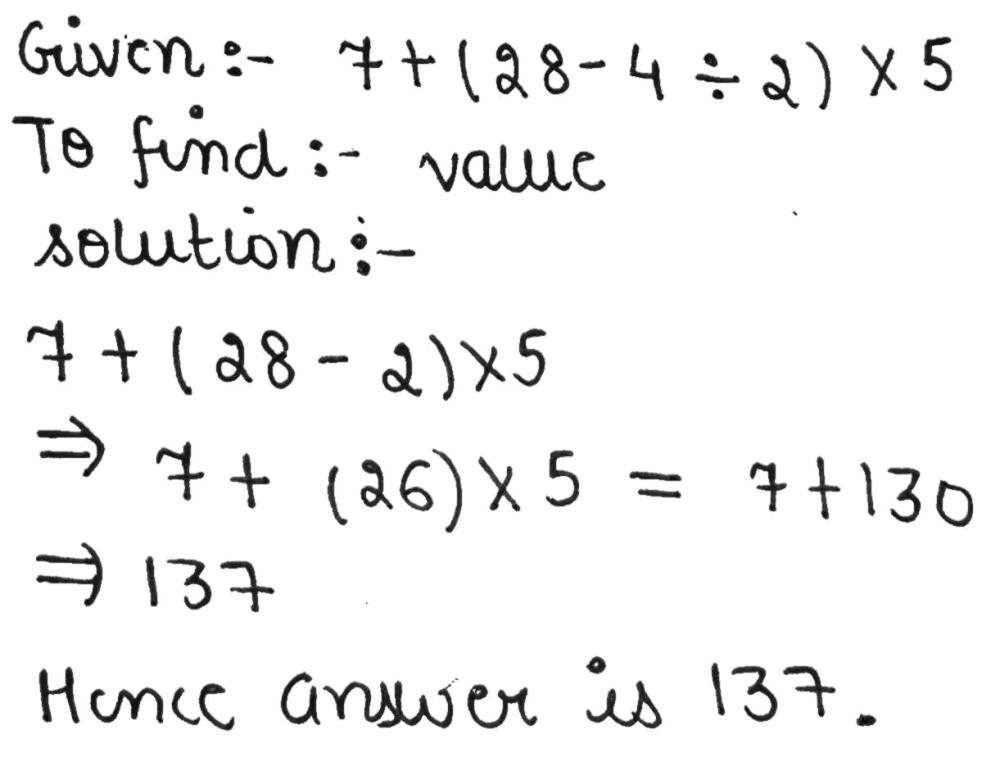 Given :- 7 + (28 - 4 ÷ 2) × 5
To find :- value
solution :-
7 + (28 - 2) × 5
⇒ 7 + (26) × 5 = 7 + 130
⇒ 137
Hence answer is 137.